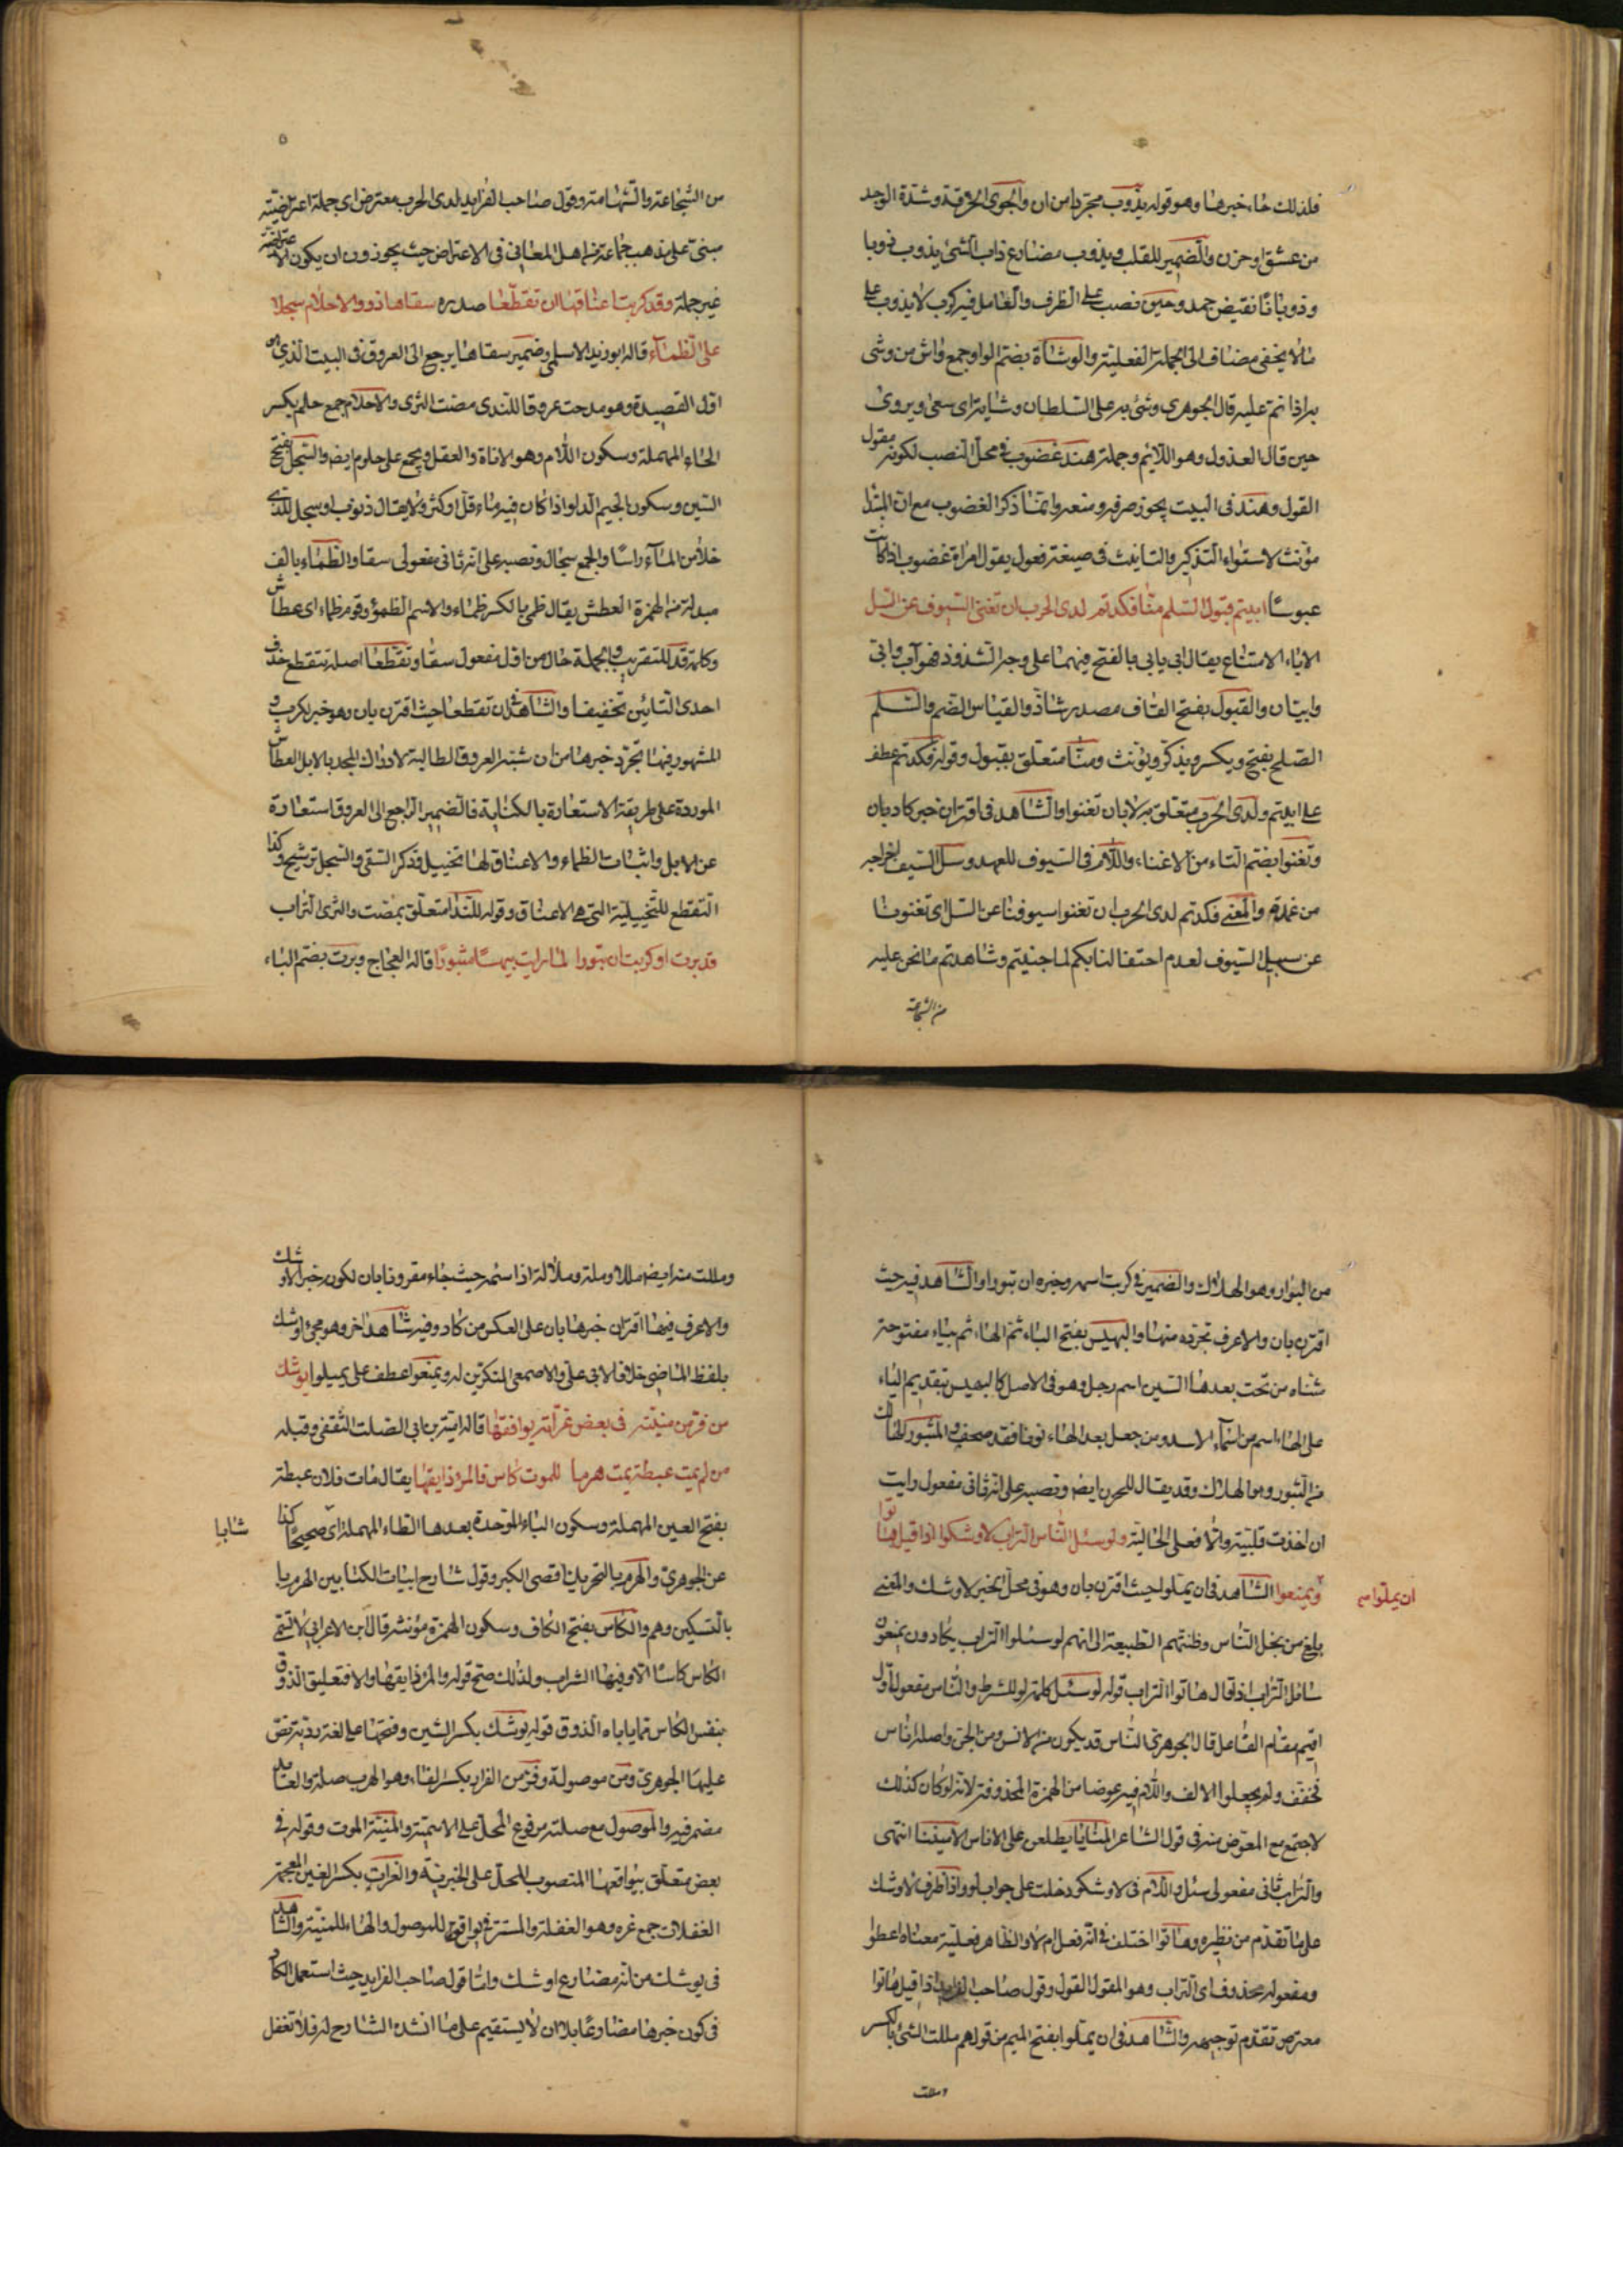 فلذلك جاء خبرها وهو قوله يذوب مجردا من ان والجوى الحرقة وشدة الوجد
من عشق او حزن والضمير للقلب ويذوب مضارع ذاب الشئ يذوب ذوبا
وذوبانا نقيض جمد وحين نصب على الظرف والعامل فيه كرب لا يذوب على
ما لا يخفى مضاف الى الجملة الفعلية والوشاة بضم الواو جمع واش من وشى
به اذا نم عليه قال الجوهري وشى به على السلطان وشاية اى سعى ويروى
حين قال العذول وهو اللائم وجملة هند غضوب فى محل النصب لكونه مقول
القول وهند فى البيت يجوز صرفه ومنعه وانما ذكر الغضوب مع ان المبتدا
مؤنث لاستواء التذكير والتانيث فى صيغة فعول يقول امراة غضوب اذا كانت
عبوسا ابيتم قبول السلم منا فكدتم لدى الحرب ان تغنوا السيوف عن السل
الاباء الامتناع يقال ابى يابى بالفتح فيهما على وجه الشذوذ فهو آب وابى
وابيان والقبول بفتح القاف مصدر شاذ والقياس الضم والسلم
الصلح بفتح ويكسر ويذكر ويؤنث ومنا متعلق بقبول وقوله فكدتم عطف
على ابيتم ولدى الحرب متعلق به لا بان تغنوا والشاهد فى اقتران خبر كاد بان
وتغنوا بضم التاء من الاغناء واللام فى السيوف للعهد وسل السيف اخراجه
من غمده والمعنى فكدتم لدى الحرب ان تغنوا سيوفنا عن السل اى تغنوننا
عن سبيل السيوف لعدم احتفالنا بكم لما جنيتم وشاهدتم ما نحن عليه
من الشجاعة
٥
من الشجاعة والشهامة وقول صاحب الفرايد لدى الحرب معترض اى جملة اعتراضية
مبنى على مذهب جماعة من اهل المعانى فى الاعتراض حيث يجوزون ان يكون الاعتراضية
غير جملة وقد كربت اعناقها ان تقطعا صدره سقاها ذوو الاحلام سجلا
على الظماء قاله ابو زيد الاسلمى وضمير سقاها يرجع الى العروق فى البيت الذى هو
اول القصيدة وهو مدحت عروقا للندى مصت الثرى والاحلام جمع حلم بكسر
الحاء المهملة وسكون اللام وهو الاناة والعقل ويجمع على حلوم ايض والسجل بفتح
السين وسكون الجيم الدلو اذا كان فيه ماء قل او كثر ولا يقال ذنوب او سجل للذى
خلا من الماء راسا والجمع سجال ونصبه على انه ثانى مفعولى سقا والظماء بالف
مبدلة من الهمزة العطش يقال ظمى بالكسر ظماء والاسم الظمؤ وقوم ظماء اى عطاش
وكلمة قد للتقريب والجملة حال من اول مفعول سقا وتقطعا اصله تتقطع حذف
احدى التائين تخفيفا والشاهد فى ان تقطعا حيث اقترن بان وهو خبر لكرب و
المشهور فيها تجرد خبرها من ان شبه العروق الطالبة لادراك المجد بالابل العطاش
الموردة على طريقة الاستعارة بالكناية فالضمير الراجع الى العروق استعارة
عن الابل واثبات الظماء والاعناق لها تخييل فذكر السقى والسجل ترشيح وكذا
التقطع للتخييلية التى هى الاعناق وقوله للندا متعلق بمضت والثرى التراب
قد برت او كربت ان تبورا لما رايت بيهسا مثبورا قاله العجاج وبرت بضم الباء
من البوار وهو الهلاك والضمير فى كربت اسمه وخبره ان تبورا والشاهد فيه حيث
اقترن بان والاعرف تجرده منها والبهيس بفتح الباء ثم الهاء ثم بياء مفتوحة
مثناه من تحت بعدها السين اسم رجل وهو فى الاصل كالبيهس بتقديم الياء
على الهاء اسم من اسماء الاسد ومن جعل بعد الهاء نونا فقد صحف والمثبور الهالك
من الثبور وهو الهلاك وقد يقال للحزن ايض ونصبه على انه ثانى مفعول رايت
ان اخذت قلبية والا فعلى الحالية ولو سئل الناس التراب لاوشكوا اذا قيل هاتوا
ان يملوا ويمنعوا الشاهد فى ان يملوا حيث اقترن بان وهو فى محل الخبر لاوشك والمعنى
بلغ من بخل الناس وظنتهم الطبيعة الى انهم لو سئلوا التراب يكادون يمنعون
سائل التراب اذا قال هاتوا التراب قوله لو سئل كلمة لو للشرط والناس مفعول اول
اقيم مقام الفاعل قال الجوهرى الناس قد يكون من الانس ومن الجن واصله اناس
فخفف ولم يجعلوا الالف واللام فيه عوضا من الهمزة المحذوفة لانه لو كان كذلك
لاجتمع مع المعوض منه فى قول الشاعر المنايا يطلعن على الاناس الآمنينا انتهى
والتراب ثانى مفعولى سئل واللام فى لاوشكو دخلت على جواب لو واذا ظرف لاوشك
على ما تقدم من نظيره وهاتوا اختلف فى انه فعل ام لا والظاهر فعلية معناه اعطوا
ومفعوله محذوف اى التراب وهو المقول القول وقول صاحب الفرايد اذا قيل هاتوا
معترض تقدم توجيهه والشاهد فى ان يملوا بفتح الميم من قولهم مللت الشئ بالكسر
ومللت
ومللت منه ايض مللا وملة وملالة اذا سئمه حيث جاء مقرونا بان لكونه خبر الاوشك
والاعرف فيها اقتران خبرها بان على العكس من كاد وفيه شاهد اخر وهو مجئ اوشك
بلفظ الماضى خلافا لابى على والاصمعى المنكرين له ويمنعوا عطف على يميلوا يوشك
من فر من منيته فى بعض غراته يوافقها قاله امية بن ابى الصلت الثقفى وقبله
من لم يمت عبطة يمت هرما للموت كاس فالمرؤ ذايقها يقال مات فلان عبطة
بفتح العين المهملة وسكون الباء الموحدة بعدها الطاء المهملة اى صحيحا كذا شابا
عن الجوهرى والهرم بالتحريك اقصى الكبر وقول شارح ابيات الكتابين الهرم يا
بالتسكين وهم والكاس بفتح الكاف وسكون الهمزة مؤنثه قال ابن الاعرابى لا تسمى
الكاس كاسا الا وفيها الشراب ولذلك صح قوله والمرؤ ذايقها والا فتعليق الذوق
بنفس الكاس مما ياباه الذوق قوله يوشك بكسر الشين وفتحها على لغة ردية نص
عليها الجوهرى ومن موصولة وفر من الفرار بكسر الفاء وهو الهرب صلة والعايد
مضمر فيه والموصول مع صلته مرفوع المحل على الاسمية والمنية الموت وقوله فى
بعض متعلق بيوافقها المنصوب المحل على الخبرية والغرات بكسر الغين المعجمة
الغفلات جمع غره وهو الغفلة والمستتر فى يوافقها للموصول والهاء للمنية والشاهد
فى يوشك من انه مضارع اوشك واما قول صاحب الفرايد حيث استعمل الكاد
فى كون خبرها مضارعا بلا ان لا يستقيم على ما انشده الشارح له فلا تغفل